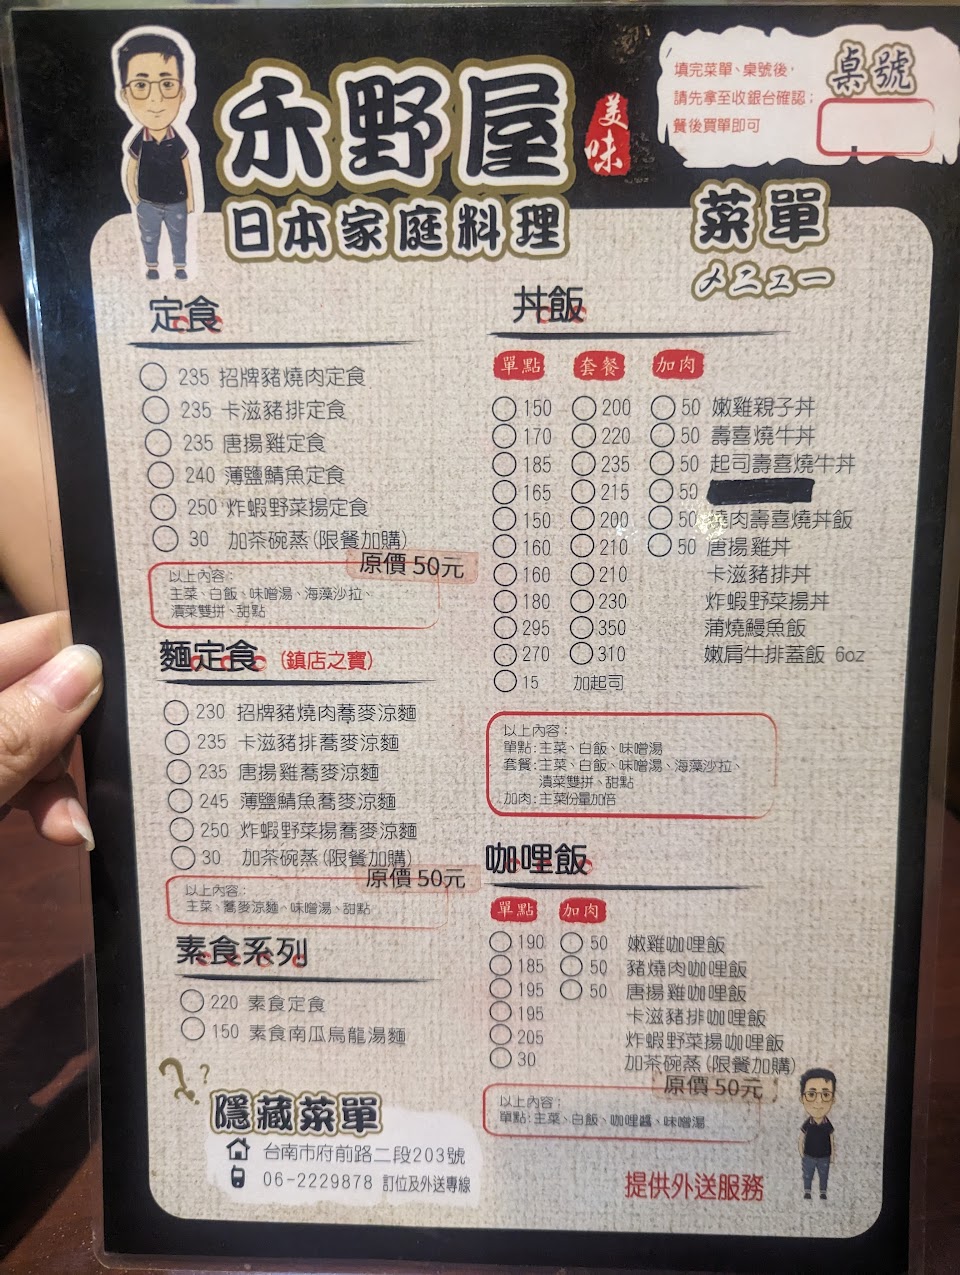 禾野屋
美味
日本家庭料理
填完菜單、桌號後，
請先拿至收銀台確認；
餐後買單即可
桌號
菜單
メニュー
定食
235 招牌豬燒肉定食
235 卡滋豬排定食
235 唐揚雞定食
240 薄鹽鯖魚定食
250 炸蝦野菜揚定食
30 加茶碗蒸(限餐加購)
原價50元
以上內容：
主菜、白飯、味噌湯、海藻沙拉、
漬菜雙拼、甜點
麵定食 (鎮店之寶)
230 招牌豬燒肉蕎麥涼麵
235 卡滋豬排蕎麥涼麵
235 唐揚雞蕎麥涼麵
245 薄鹽鯖魚蕎麥涼麵
250 炸蝦野菜揚蕎麥涼麵
30 加茶碗蒸(限餐加購)
原價50元
以上內容：
主菜、蕎麥涼麵、味噌湯、甜點
素食系列
220 素食定食
150 素食南瓜烏龍湯麵
隱藏菜單
台南市府前路二段203號
06-2229878 訂位及外送專線
丼飯
單點 套餐 加肉
150 200 50 嫩雞親子丼
170 220 50 壽喜燒牛丼
185 235 50 起司壽喜燒牛丼
165 215 50
150 200 50 燒肉壽喜燒丼飯
160 210 50 唐揚雞丼
160 210 卡滋豬排丼
180 230 炸蝦野菜揚丼
295 350 蒲燒鰻魚飯
270 310 嫩肩牛排蓋飯 6oz
15 加起司
以上內容：
單點：主菜、白飯、味噌湯
套餐：主菜、白飯、味噌湯、海藻沙拉、
漬菜雙拼、甜點
加肉：主菜份量加倍
咖哩飯
單點 加肉
190 50 嫩雞咖哩飯
185 50 豬燒肉咖哩飯
195 50 唐揚雞咖哩飯
195 卡滋豬排咖哩飯
205 炸蝦野菜揚咖哩飯
30 加茶碗蒸(限餐加購)
原價50元
以上內容：
單點：主菜、白飯、咖哩醬、味噌湯
提供外送服務